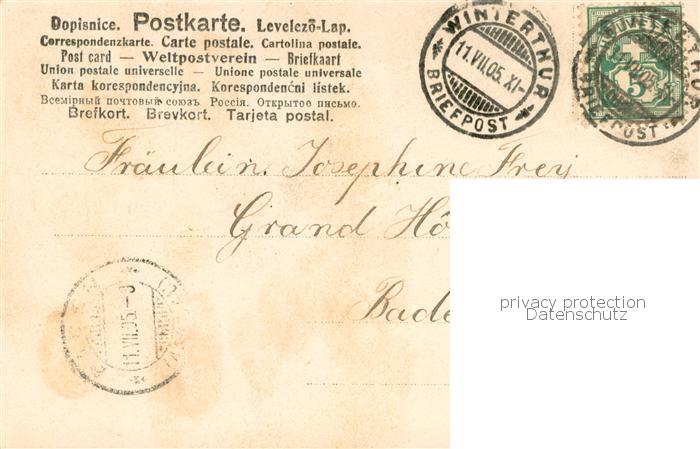 Dopisnice. Postkarte. Levelező-Lap.
Correspondenzkarte. Carte postale. Cartolina postale.
Post card — Weltpostverein — Briefkaart
Union postale universelle — Unione postale universale
Karta korespondencyjna. Korespondenční lístek.
Всемірный почтовый союзъ. Россія. Открытое письмо.
Brefkort. Brevkort. Tarjeta postal.
WINTERTHUR
11.VII.05.XI-
BRIEFPOST
5
Fräulein Josephine Frey
Grand Hô
Bade
11.VII.05.-3
privacy protection
Datenschutz